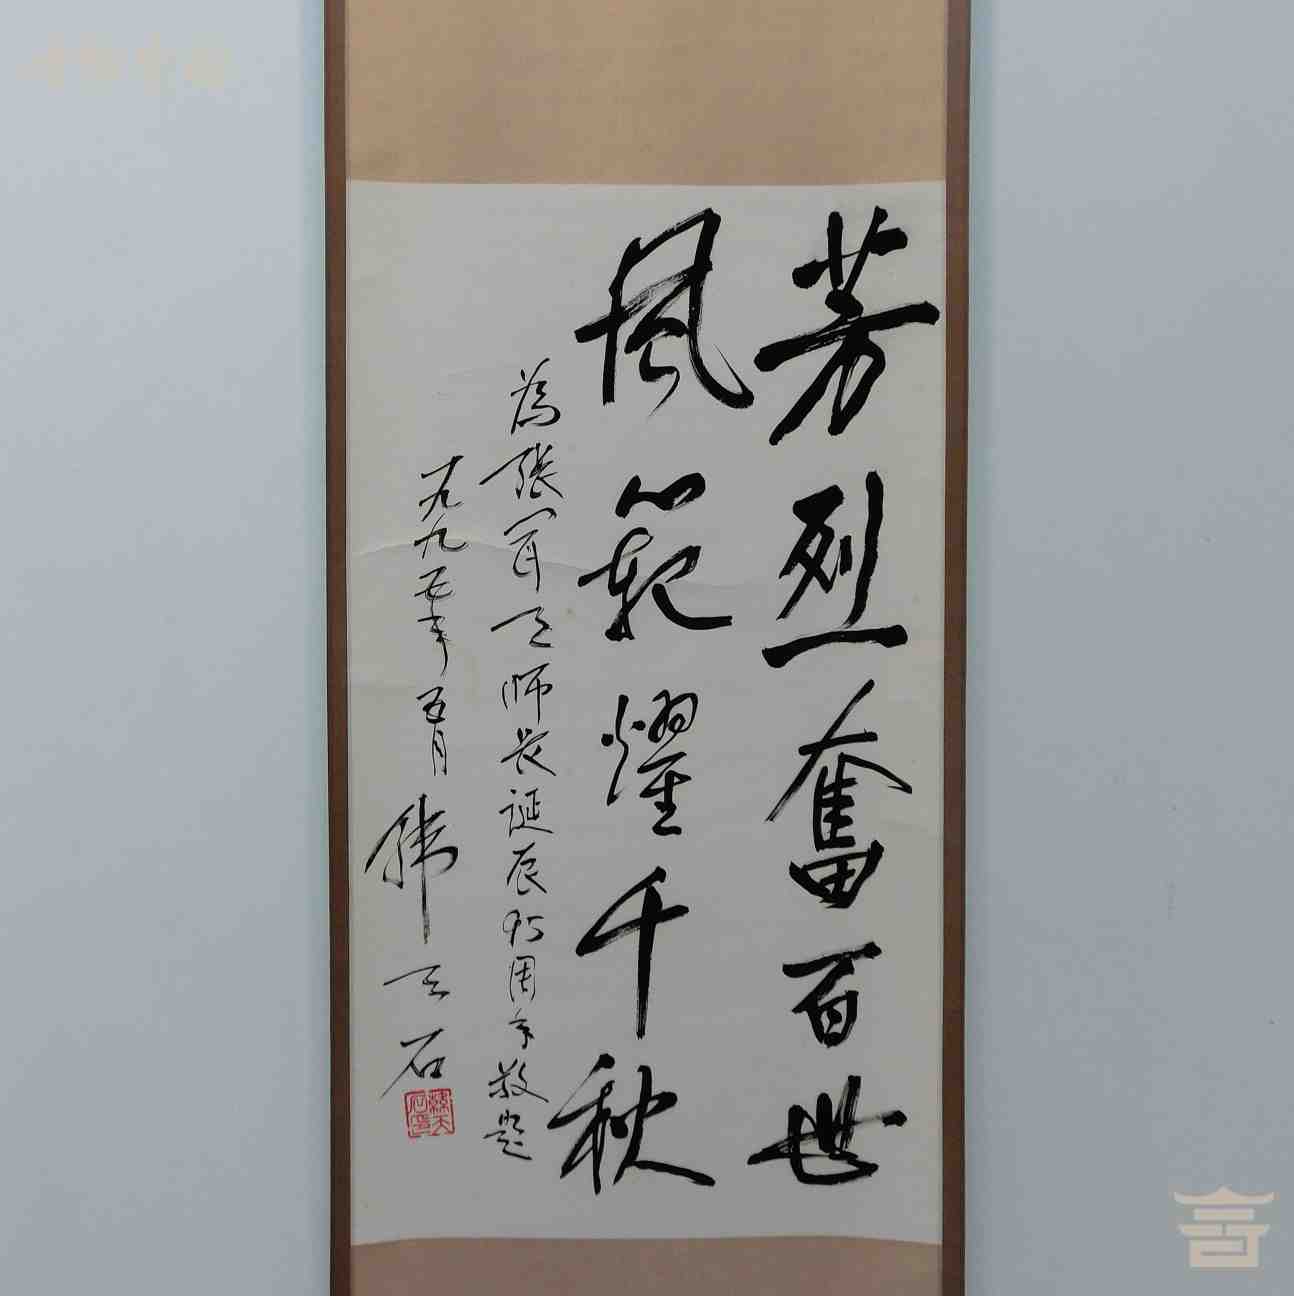 芳烈奮百世
風範燿千秋
為張天師長誕辰周年敬題
一九九五年五月 韓天石
韓天石印